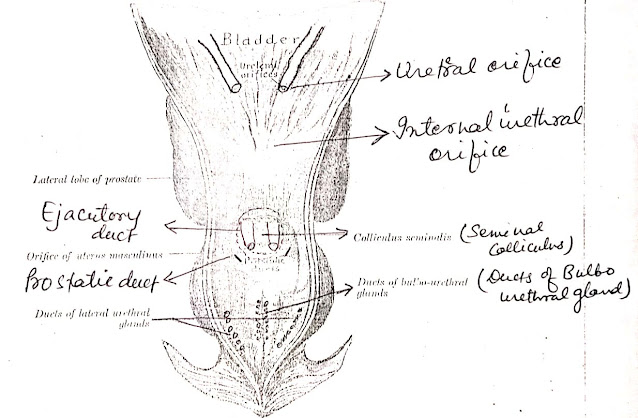 Bladder
Ureteral
orifices
Uretral orifice
Internal urethral
orifice
Lateral lobe of prostate
Ejacutory
duct
Colliculus seminalis
(Seminal
Colliculus)
Orifice of uterus masculinus
Prostatic
ducts
Prostatic duct
Ducts of bulbo-urethral
glands
(Ducts of Bulbo
urethral gland)
Ducts of lateral urethral
glands